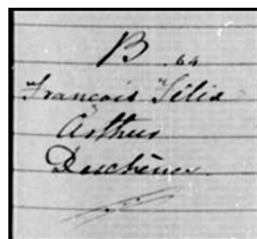 B. 64
François Félix
Arthur
Deschênes